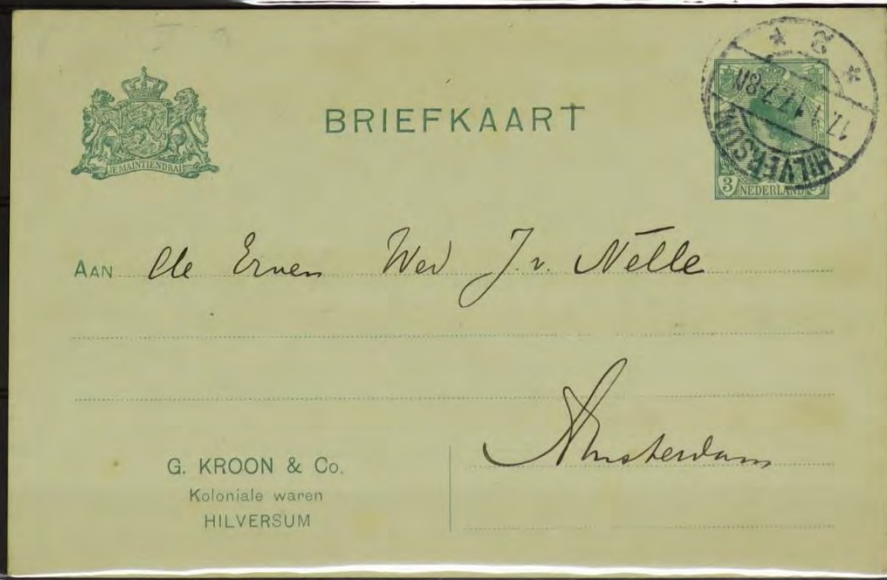 BRIEFKAART
JE MAINTIENDRAI
HILVERSUM
17.1.17.7-8N
* 2 *
3 NEDERLAND
AAN de Erven Wed J. v. Nelle
Amsterdam
G. KROON & Co.
Koloniale waren
HILVERSUM